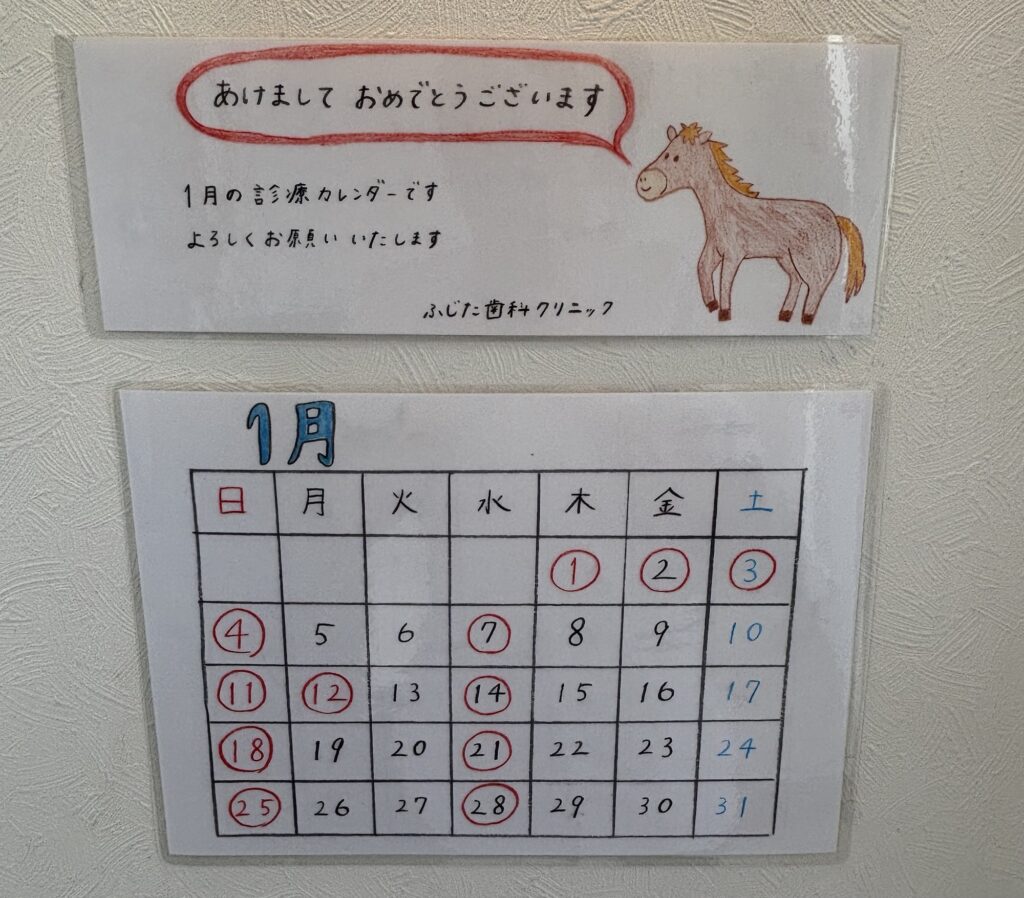 あけまして おめでとうございます
1月の診療カレンダーです
よろしくお願いいたします
ふじた歯科クリニック
1月
日 月 火 水 木 金 土
1 2 3
4 5 6 7 8 9 10
11 12 13 14 15 16 17
18 19 20 21 22 23 24
25 26 27 28 29 30 31